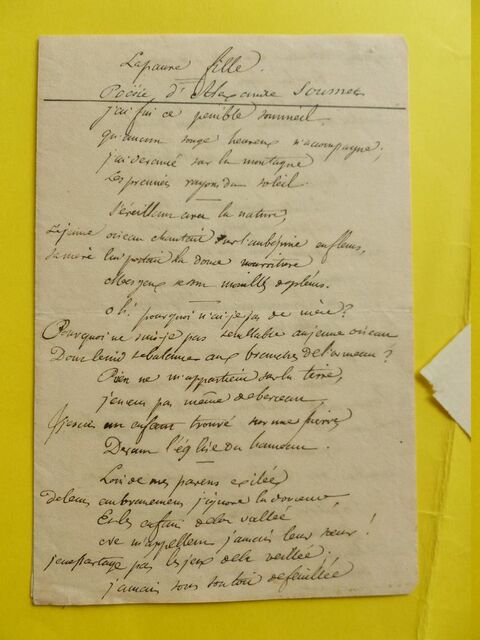 La pauvre fille.
Poésie d'Alexandre Soumet
j'ai fui ce penible sommeil
qu'aucun songe heureux n'acompagne;
j'ai devancé sur la montagne
Les premiers rayons du soleil.
S'éveillant avec la nature,
Le jeune oiseau chantait sur l'aubépine en fleurs,
Sa mère lui portait la douce nourriture
Mes yeux se sont mouillés de pleurs.
oh! pourquoi n'ai-je pas de mère?
Pourquoi ne suis-je pas semblable au jeune oiseau
Dont le nid se balance aux branches de l'ormeau?
Rien ne m'appartient sur la terre,
je n'eus pas même de berceau,
Je suis un enfant trouvé sur une pierre
Devant l'église du hameau.
Loin de mes parens exilée
de leurs embrassemens j'ignore la douceur,
Et les enfans de la vallée
ne m'appellent jamais leur sœur!
je ne partage pas les jeux de la veillée;
jamais sous son toit de feuillée